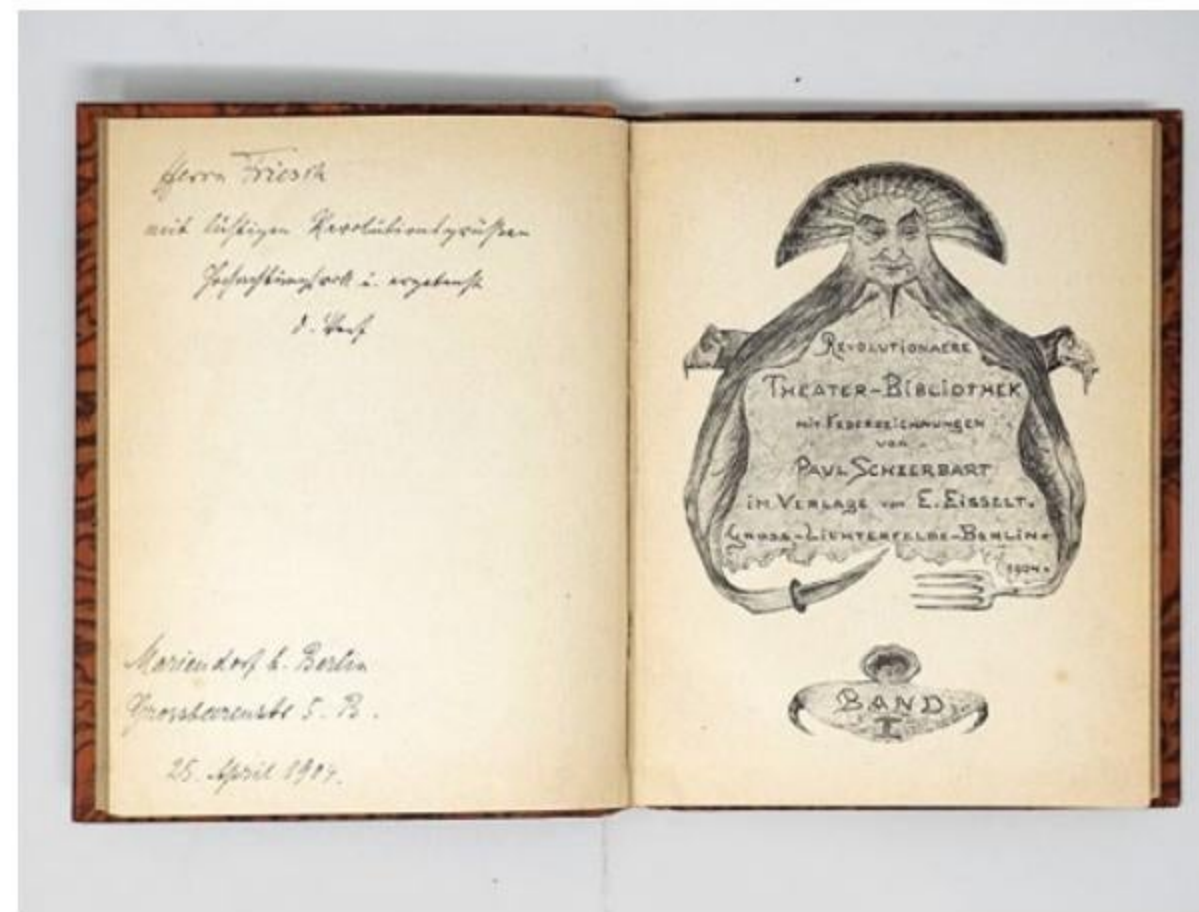 Herrn Friesch
mit lustigen Revolutionsgrüßen
Hochachtungsvoll u. ergebenst
d. Verf
Mariendorf b. Berlin
Grossbeerenstr 5. B.
25. April 1904.
REVOLUTIONAERE
THEATER-BIBLIOTHEK
MIT FEDERZEICHNUNGEN
VON
PAUL SCHEERBART
IM VERLAGE VON E. EISSELT.
GROSS-LICHTERFELDE-BERLIN.
1904.
BAND
I